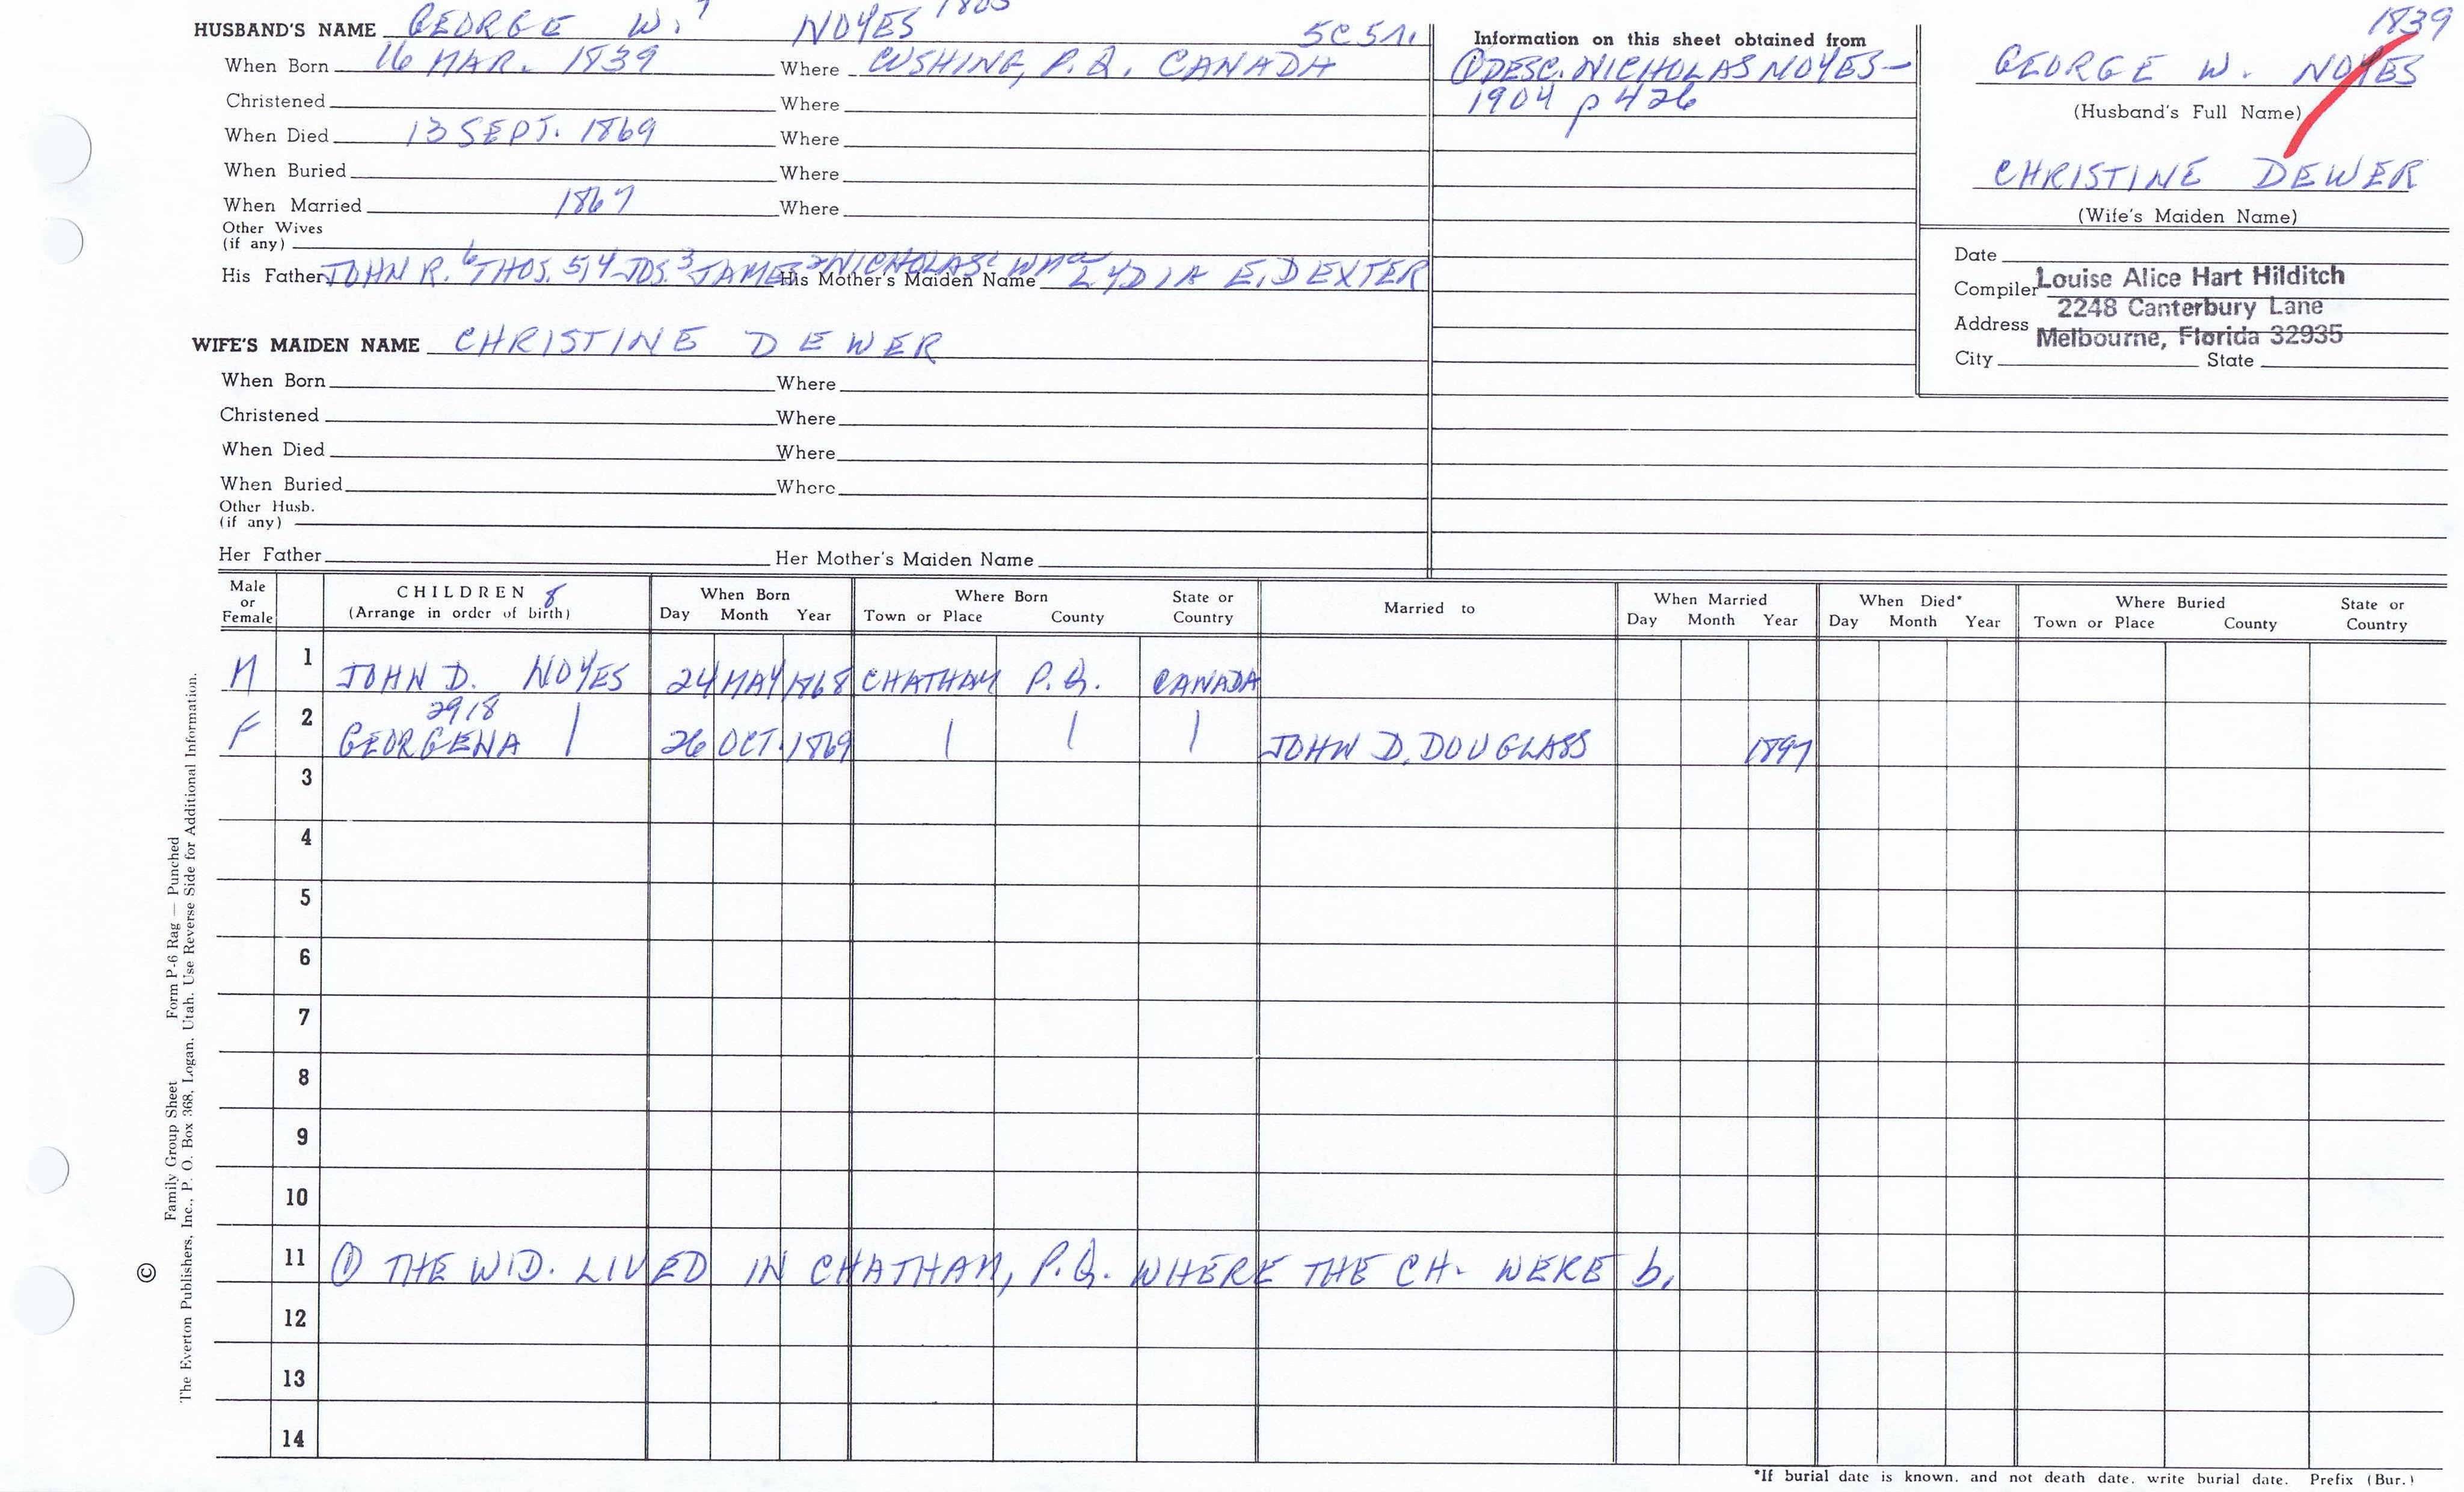 HUSBAND'S NAME GEORGE W.7 NOYES 1805 5C5A.
When Born 16 MAR. 1839 Where CUSHING, P.Q. CANADA
Christened Where
When Died 13 SEPT. 1869 Where
When Buried Where
When Married 1867 Where
Other Wives
(if any)
His Father JOHN R.6 THOS. 5,4 JOS.3 JAMES2 NICHOLAS1 WMa His Mother's Maiden Name LYDIA E. DEXTER
WIFE'S MAIDEN NAME CHRISTINE DEWER
When Born Where
Christened Where
When Died Where
When Buried Where
Other Husb.
(if any)
Her Father Her Mother's Maiden Name
Information on this sheet obtained from
① DESC. NICHOLAS NOYES—
1904 p 426
1839
GEORGE W. NOYES
(Husband's Full Name)
CHRISTINE DEWER
(Wife's Maiden Name)
Date
Compiler Louise Alice Hart Hilditch
2248 Canterbury Lane
Address Melbourne, Florida 32935
City State
Male or Female CHILDREN 8 (Arrange in order of birth) When Born Day Month Year Where Born Town or Place County State or Country Married to When Married Day Month Year When Died* Day Month Year Where Buried Town or Place County State or Country
M 1 JOHN D. NOYES 24 MAY 1868 CHATHAM P.Q. CANADA
2918
F 2 GEORGENA | 26 OCT. 1869 | | | JOHN D. DOUGLASS 1897
3
4
5
6
7
8
9
10
11 ① THE WID. LIVED IN CHATHAM, P.Q. WHERE THE CH. WERE b.
12
13
14
*If burial date is known, and not death date, write burial date. Prefix (Bur.)
© Family Group Sheet Form P-6 Rag — Punched
The Everton Publishers, Inc., P. O. Box 368, Logan, Utah. Use Reverse Side for Additional Information.